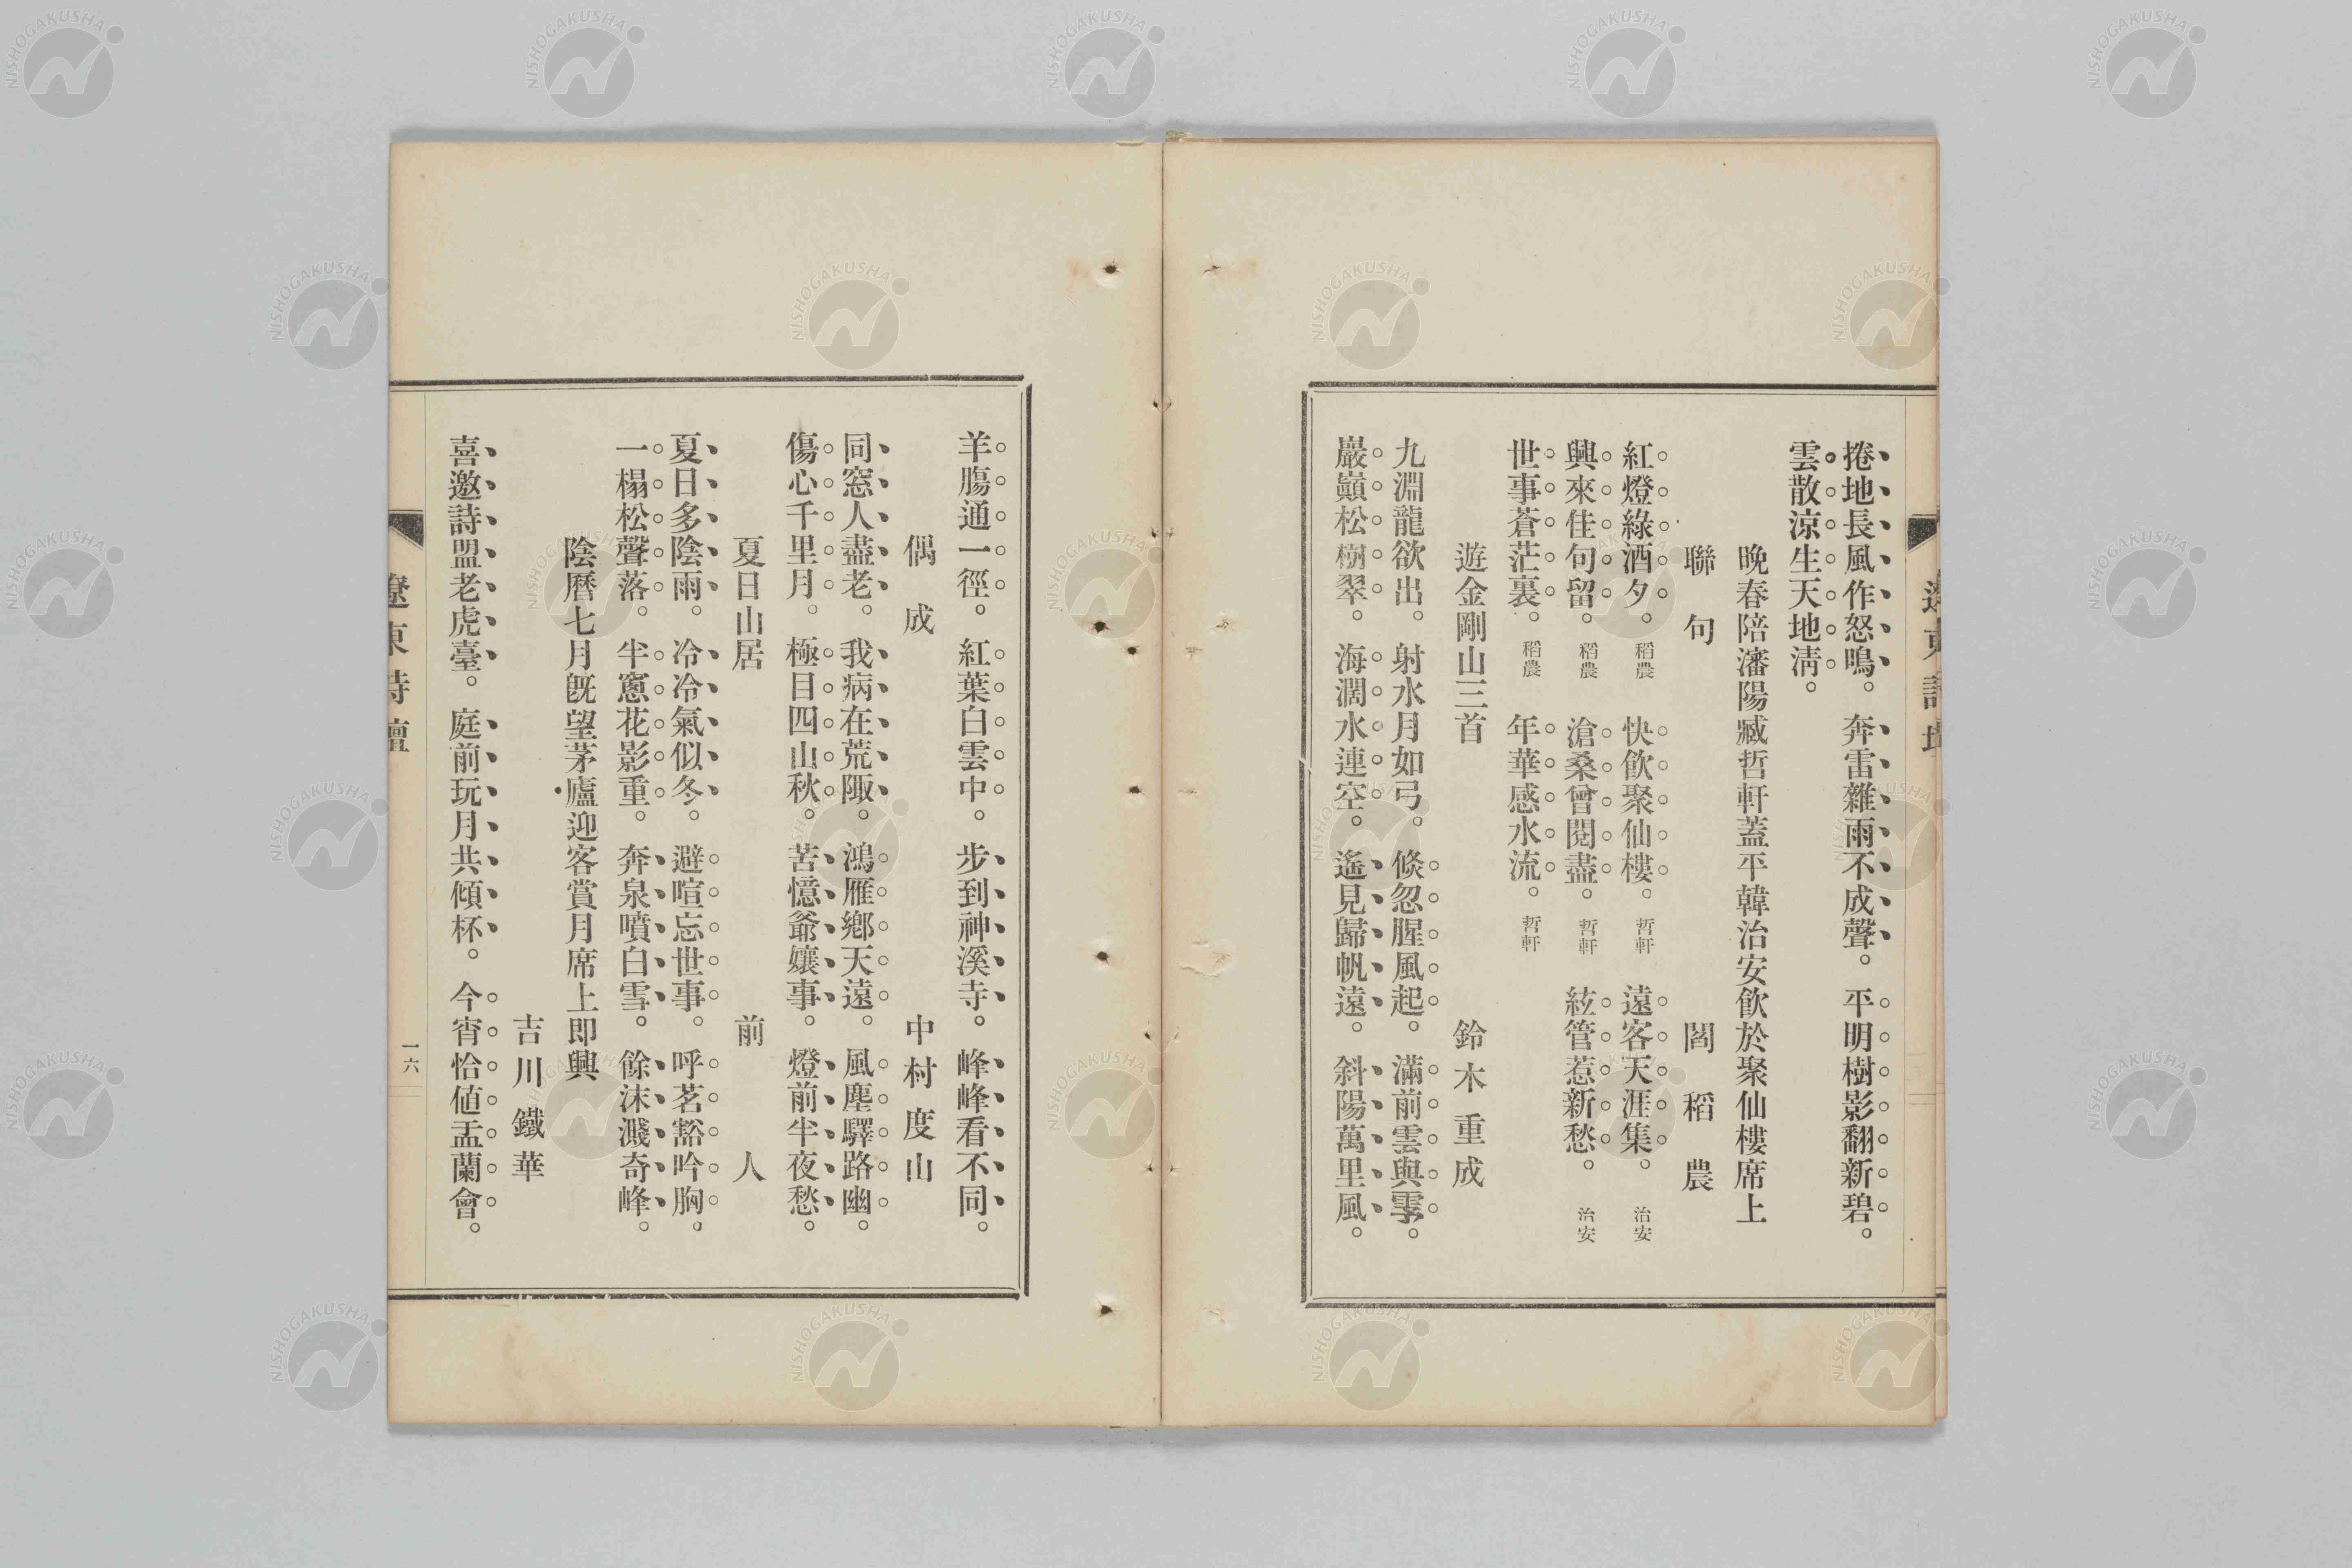 捲地長風作怒鳴。奔雷雜雨不成聲。平明樹影翻新碧。
雲散涼生天地淸。
晩春陪瀋陽臧哲軒蓋平韓治安飮於聚仙樓席上
聯句　閻稻農
紅燈綠酒夕。稻農　快飮聚仙樓。哲軒　遠客天涯集。治安
興來佳句留。稻農　滄桑曾閱盡。哲軒　絃管惹新愁。治安
世事蒼茫裏。稻農　年華感水流。哲軒
遊金剛山三首　鈴木重成
九淵龍欲出。射水月如弓。倏忽腥風起。滿前雲與霽。
巖巓松樹翠。海濶水連空。遙見歸帆遠。斜陽萬里風。
羊腸通一徑。紅葉白雲中。步到神溪寺。峰峰看不同。
偶成　中村度山
同窓人盡老。我病在荒陬。鴻雁鄕天遠。風塵驛路幽。
傷心千里月。極目四山秋。苦憶爺孃事。燈前半夜愁。
夏日山居　前人
夏日多陰雨。冷冷氣似冬。避喧忘世事。呼茗豁吟胸。
一榻松聲落。半窻花影重。奔泉噴白雪。餘沫濺奇峰。
陰曆七月旣望茅廬迎客賞月席上卽興
吉川鐵華
喜邀詩盟老虎臺。庭前玩月共傾杯。今宵恰値盂蘭會。
遼東詩壇
一六
NISHOGAKUSHA